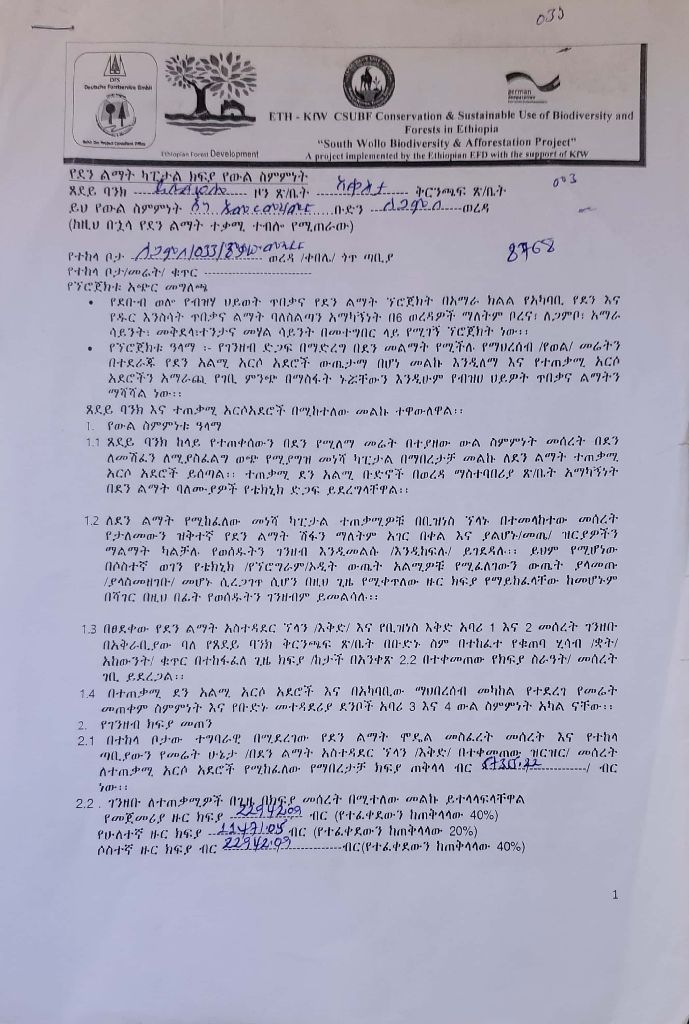 033
DFS
Deutsche Forstservice GmbH
Ethiopian Forest Development
german
ETH - KfW CSUBF Conservation & Sustainable Use of Biodiversity and
Forests in Ethiopia
"South Wollo Biodiversity & Afforestation Project"
A project implemented by the Ethiopian EFD with the support of KfW
የደን ልማት ካፒታል ክፍያ የውል ስምምነት
ጸደይ ባንክ ዞን ጽ/ቤት ቅርንጫፍ ጽ/ቤት 003
ይህ የውል ስምምነት ቡድን ወረዳ
(ከዚህ በኋላ የደን ልማት ተቃሚ ተብሎ የሚጠራው)
የተከላ ቦታ ወረዳ /ቀበሌ/ ጎጥ ጣቢያ 8768
የተከላ ቦታ/መሬት/ ቁጥር
የፕሮጀክቱ አጭር መግለጫ
• የደቡብ ወሎ የብዝሃ ህይወት ጥበቃና የደን ልማት ፕሮጀክት በአማራ ክልል የአካባቢ የደን እና
የዱር እንስሳት ጥበቃና ልማት ባለስልጣን አማካኝነት በ6 ወረዳዎች ማለትም ቦረና፣ ለጋምቦ፣ አማራ
ሳይንት፣ መቅደላ፣ተንታና መሃል ሳይንት በመተግበር ላይ የሚገኝ ፕሮጀክት ነው፡፡
• የፕሮጀክቱ ዓላማ ፡- የገንዘብ ድጋፍ በማድረግ በደን መልማት የሚችሉ የማህበረሰብ /የወል/ መሬትን
በተደራጁ የደን አልሚ አርሶ አደሮች ውጤታማ በሆነ መልኩ እንዲለማ እና የተጠቃሚ አርሶ
አደሮችን አማራጪ የገቢ ምንጭ በማስፋት ኑሯቸውን እንዲሁም የብዝሀ ህይዎት ጥበቃና ልማትን
ማሻሻል ነው፡፡
ጸደይ ባንክ እና ተጠቃሚ አርሶአደሮች በሚከተለው መልኩ ተዋውለዋል፡፡
1. የውል ስምምነቱ ዓላማ
1.1 ጸደይ ባንክ ከላይ የተጠቀሰውን በደን የሚለማ መሬት በተያዘው ውል ስምምነት መሰረት በደን
ለመሸፈን ለሚያስፈልግ ወጭ የሚያግዝ መነሻ ካፒታል በማበረታቻ መልኩ ለደን ልማት ተጠቃሚ
አርሶ አደሮች ይሰጣል፡፡ ተጠቃሚ ደን አልሚ ቡድኖች በወረዳ ማስተባበሪያ ጽ/ቤት አማካኝነት
በደን ልማት ባለሙያዎች የቴክኒክ ድጋፍ ይደረግላቸዋል፡፡
1.2 ለደን ልማት የሚከፈለው መነሻ ካፒታል ተጠቃሚዎቹ በቢዝነስ ፕላኑ በተመላከተው መሰረት
የታለመውን ዝቅተኛ የደን ልማት ሽፋን ማለትም አገር በቀል እና ያልሆኑ/መጤ/ ዝርያዎችን
ማልማት ካልቻሉ የወሰዱትን ገንዘብ እንዲመልሱ /እንዲከፍሉ/ ይገደዳሉ፡፡ ይህም የሚሆነው
በሶስተኛ ወገን የቴክኒክ /የፕሮግራም/ኦዲት ውጤት አልሚዎቹ የሚፈለገውን ውጤት ያላመጡ
/ያላስመዘገቡ/ መሆኑ ሲረጋገጥ ሲሆን በዚህ ጊዜ የሚቀጥለው ዙር ክፍያ የማይከፈላቸው ከመሆኑም
በሻገር በዚህ በፊት የወሰዱትን ገንዘብም ይመልሳሉ፡፡
1.3 በፀደቀው የደን ልማት አስተዳደር ፕላን /እቅድ/ እና የቢዝነስ እቅድ አባሪ 1 እና 2 መሰረት ገንዘቡ
በአቅራቢያው ባለ የጸደይ ባንክ ቅርንጫፍ ጽ/ቤት በቡድኑ ስም በተከፈተ የቁጠባ ሂሳብ /ቋት/
አካውንት/ ቁጥር በተከፋፈለ ጊዜ ክፍያ /ከታች በአንቀጽ 2.2 በተቀመጠው የክፍያ ስራዓት/ መሰረት
ገቢ ይደረጋል፡፡
1.4 በተጠቃሚ ደን አልሚ አርሶ አደሮች እና በአካባቢው ማህበረሰብ መካከል የተደረገ የመሬት
መጠቀም ስምምነት እና የቡድኑ መተዳደሪያ ደንቦች አባሪ 3 እና 4 ውል ስምምነት አካል ናቸው፡፡
2. የገንዘብ ክፍያ መጠን
2.1 በተከላ ቦታው ተግባራዊ በሚደረገው የደን ልማት ሞዴል መስፈረት መሰረት እና የተከላ
ጣቢያውን የመሬት ሁኔታ /በደን ልማት አስተዳደር ፕላን /እቅድ/ በተቀመጠው ዝርዝር/ መሰረት
ለተጠቃሚ አርሶ አደሮች የሚከፈለው የማበረታቻ ክፍያ ጠቅላላ ብር / ብር
ነው፡፡
2.2 . ገንዘቡ ለተጠቃሚዎች በጊዜ በክፍያ መሰረት በሚተለው መልኩ ይተላላፍላቸዋል
የመጀመሪያ ዙር ክፍያ 22942.09 ብር (የተፈቀደውን ከጠቅላላው 40%)
የሁለተኛ ዙር ክፍያ 11471.05 ብር (የተፈቀደውን ከጠቅላላው 20%)
ሶስተኛ ዙር ክፍያ ብር 22942.09 ብር(የተፈቀደውን ከጠቅላላው 40%)
1